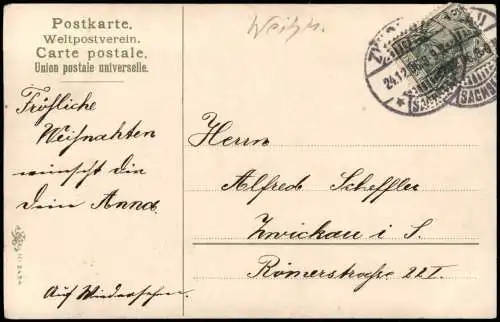 Postkarte.
Weltpostverein.
Carte postale.
Union postale universelle.
Fröhliche
Weihnahten
wünscht dir
Dein Anna.
Auf Wiedersehen.
Herrn
Alfred Scheffler
Zwickau i S.
Römerstraße 22I.
24.12.